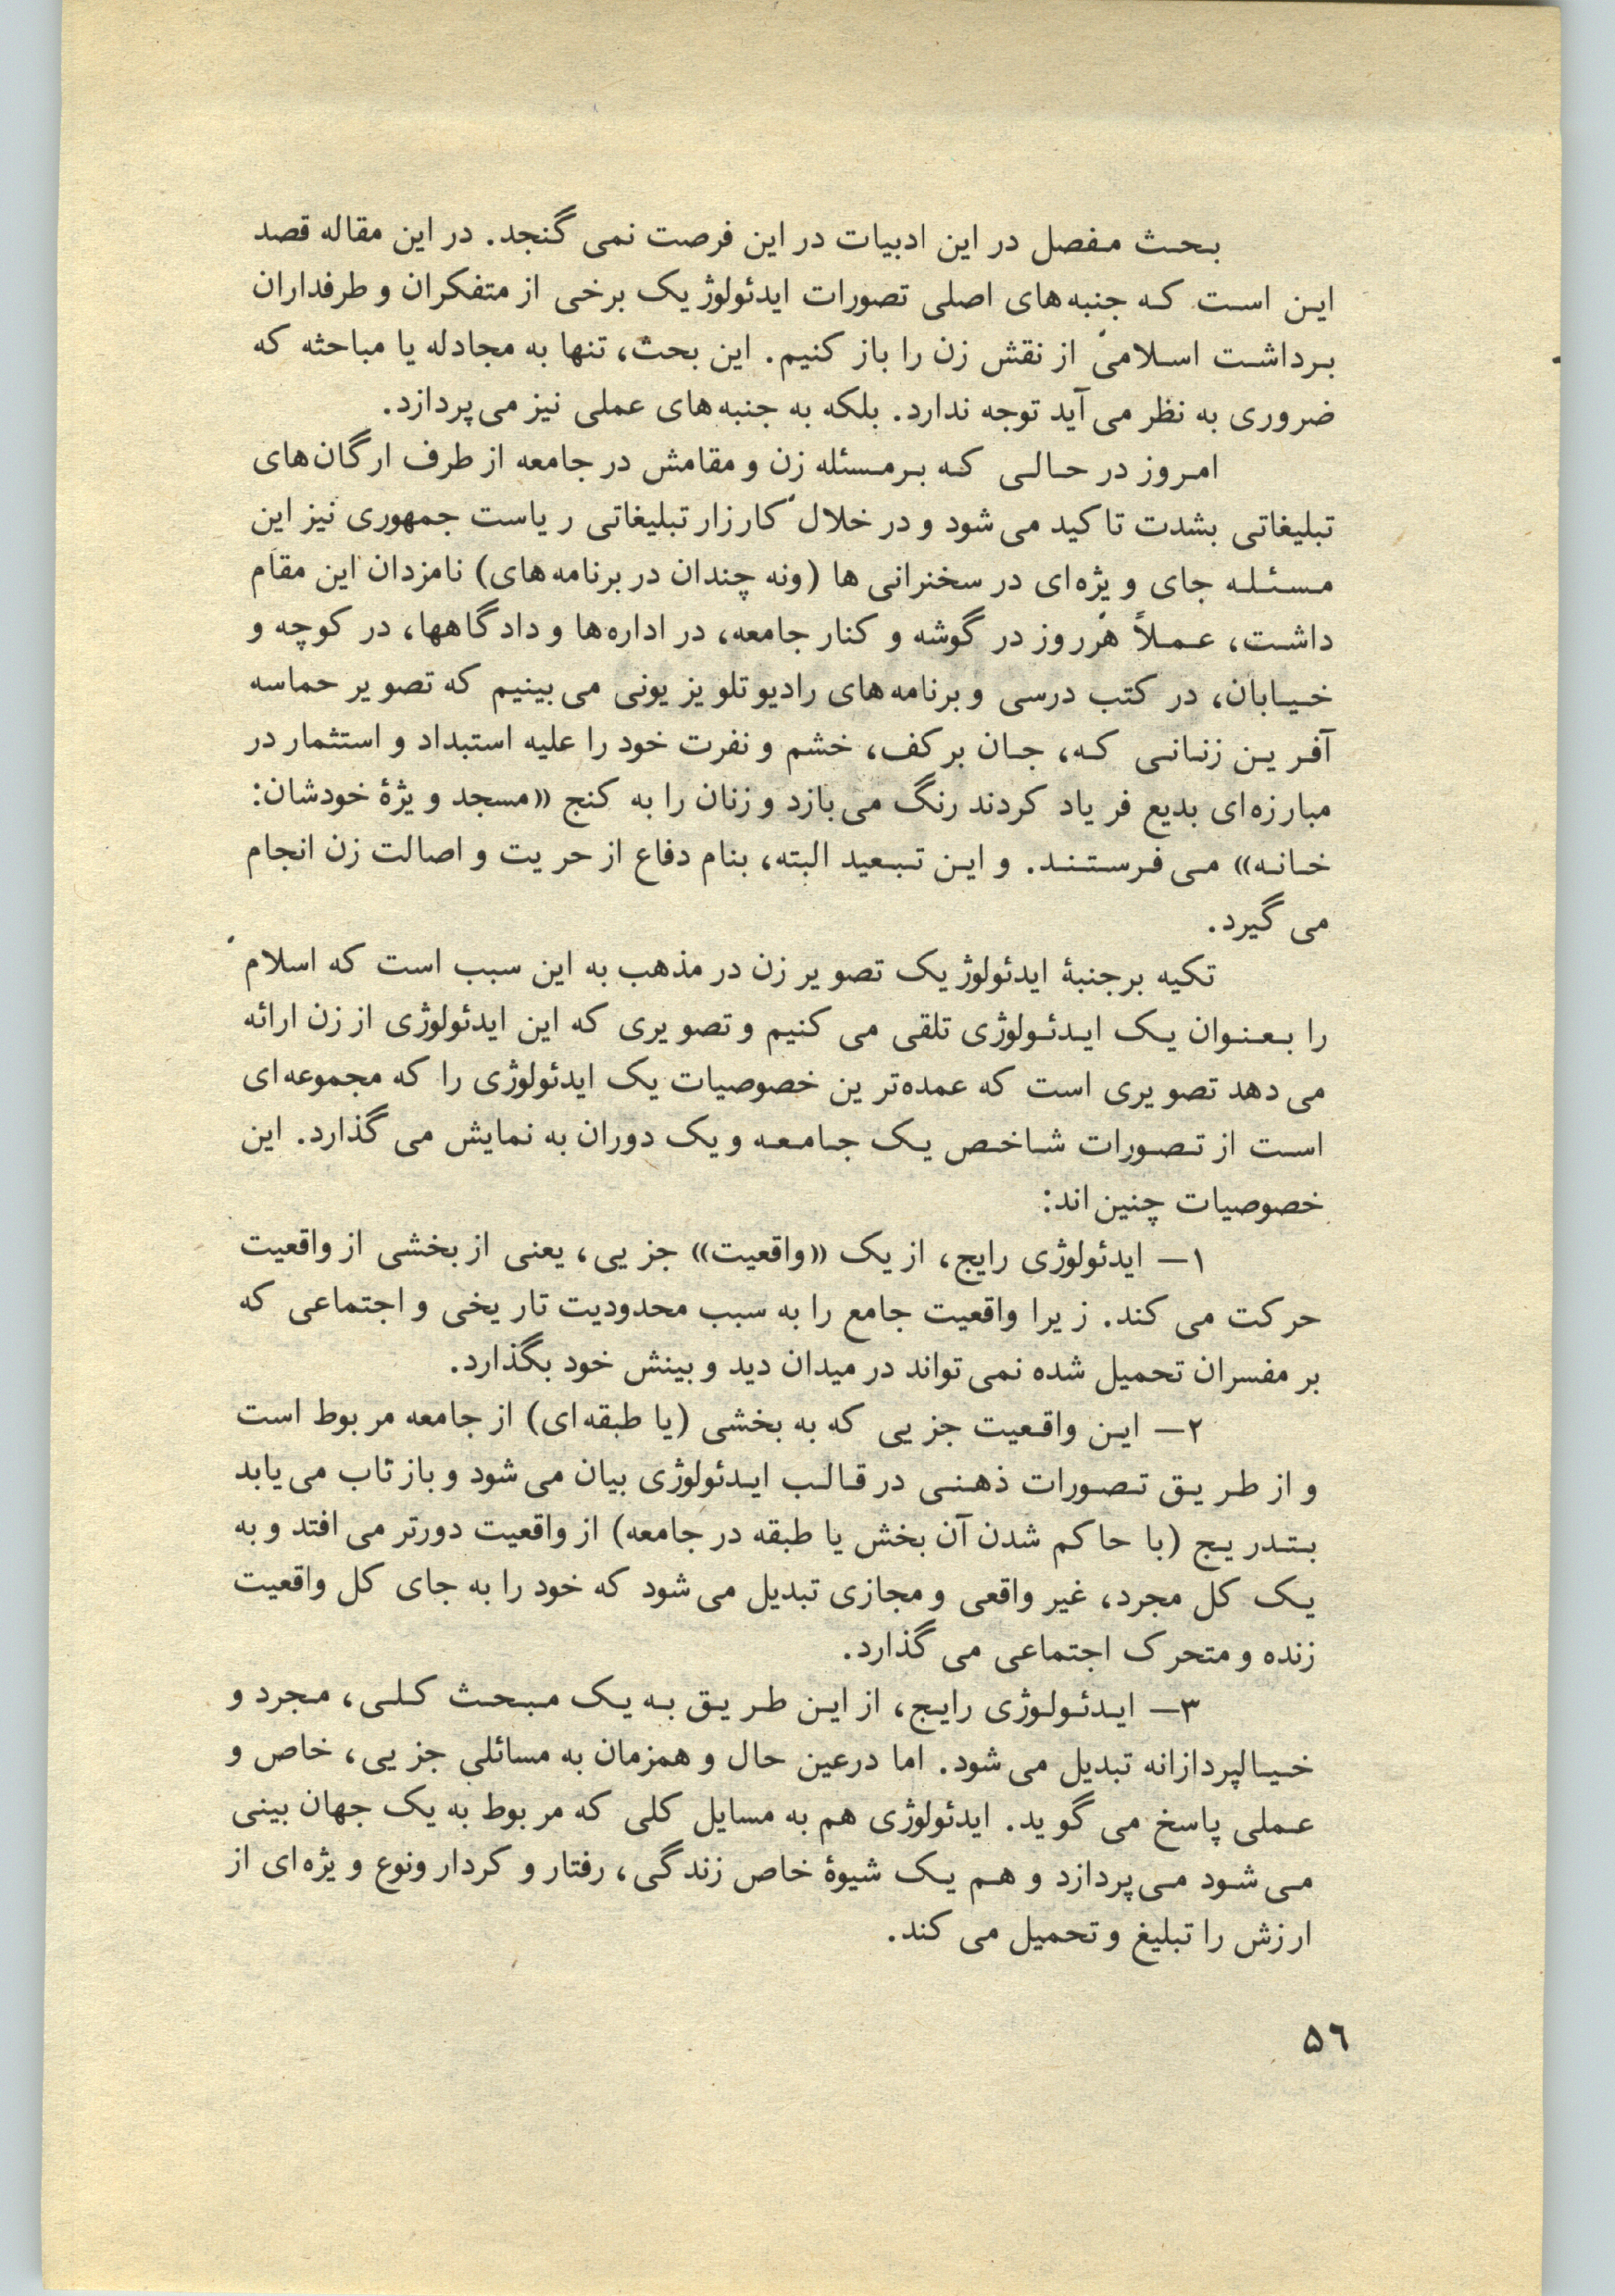 بحث مفصل در این ادبیات در این فرصت نمی گنجد. در این مقاله قصد
این است که جنبه‌های اصلی تصورات ایدئولوژیک برخی از متفکران و طرفداران
برداشت اسلامی از نقش زن را باز کنیم. این بحث، تنها به مجادله یا مباحثه که
ضروری به نظر می‌آید توجه ندارد. بلکه به جنبه‌های عملی نیز می‌پردازد.
امروز در حالی که برمسئله زن و مقامش در جامعه از طرف ارگان‌های
تبلیغاتی بشدت تاکید می‌شود و در خلال کارزار تبلیغاتی ریاست جمهوری نیز این
مسئله جای ویژه‌ای در سخنرانی ها (ونه چندان در برنامه‌های) نامزدان این مقام
داشت، عملاً هرروز در گوشه و کنار جامعه، در اداره‌ها و دادگاهها، در کوچه و
خیابان، در کتب درسی و برنامه‌های رادیو تلویزیونی می‌بینیم که تصویر حماسه
آفرین زنانی که، جان برکف، خشم و نفرت خود را علیه استبداد و استثمار در
مبارزه‌ای بدیع فریاد کردند رنگ می‌بازد و زنان را به کنج «مسجد ویژهٔ خودشان:
خانه» می‌فرستند. و این تبعید البته، بنام دفاع از حریت و اصالت زن انجام
می گیرد.
تکیه برجنبهٔ ایدئولوژیک تصویر زن در مذهب به این سبب است که اسلام
را بعنوان یک ایدئولوژی تلقی می کنیم و تصویری که این ایدئولوژی از زن ارائه
می‌دهد تصویری است که عمده‌ترین خصوصیات یک ایدئولوژی را که مجموعه‌ای
است از تصورات شاخص یک جامعه و یک دوران به نمایش می گذارد. این
خصوصیات چنین‌اند:
۱– ایدئولوژی رایج، از یک «واقعیت» جزیی، یعنی از بخشی از واقعیت
حرکت می کند. زیرا واقعیت جامع را به سبب محدودیت تاریخی و اجتماعی که
بر مفسران تحمیل شده نمی‌تواند در میدان دید و بینش خود بگذارد.
۲– این واقعیت جزیی که به بخشی (یا طبقه‌ای) از جامعه مربوط است
و از طریق تصورات ذهنی در قالب ایدئولوژی بیان می‌شود و بازتاب می‌یابد
بتدریج (با حاکم شدن آن بخش یا طبقه در جامعه) از واقعیت دورتر می‌افتد و به
یک کل مجرد، غیر واقعی و مجازی تبدیل می‌شود که خود را به جای کل واقعیت
زنده و متحرک اجتماعی می گذارد.
۳– ایدئولوژی رایج، از این طریق به یک مبحث کلی، مجرد و
خیالپردازانه تبدیل می‌شود. اما درعین حال و همزمان به مسائلی جزیی، خاص و
عملی پاسخ می گوید. ایدئولوژی هم به مسایل کلی که مربوط به یک جهان بینی
می‌شود می‌پردازد و هم یک شیوهٔ خاص زندگی، رفتار و کردار ونوع ویژه‌ای از
ارزش را تبلیغ و تحمیل می کند.
۵۶